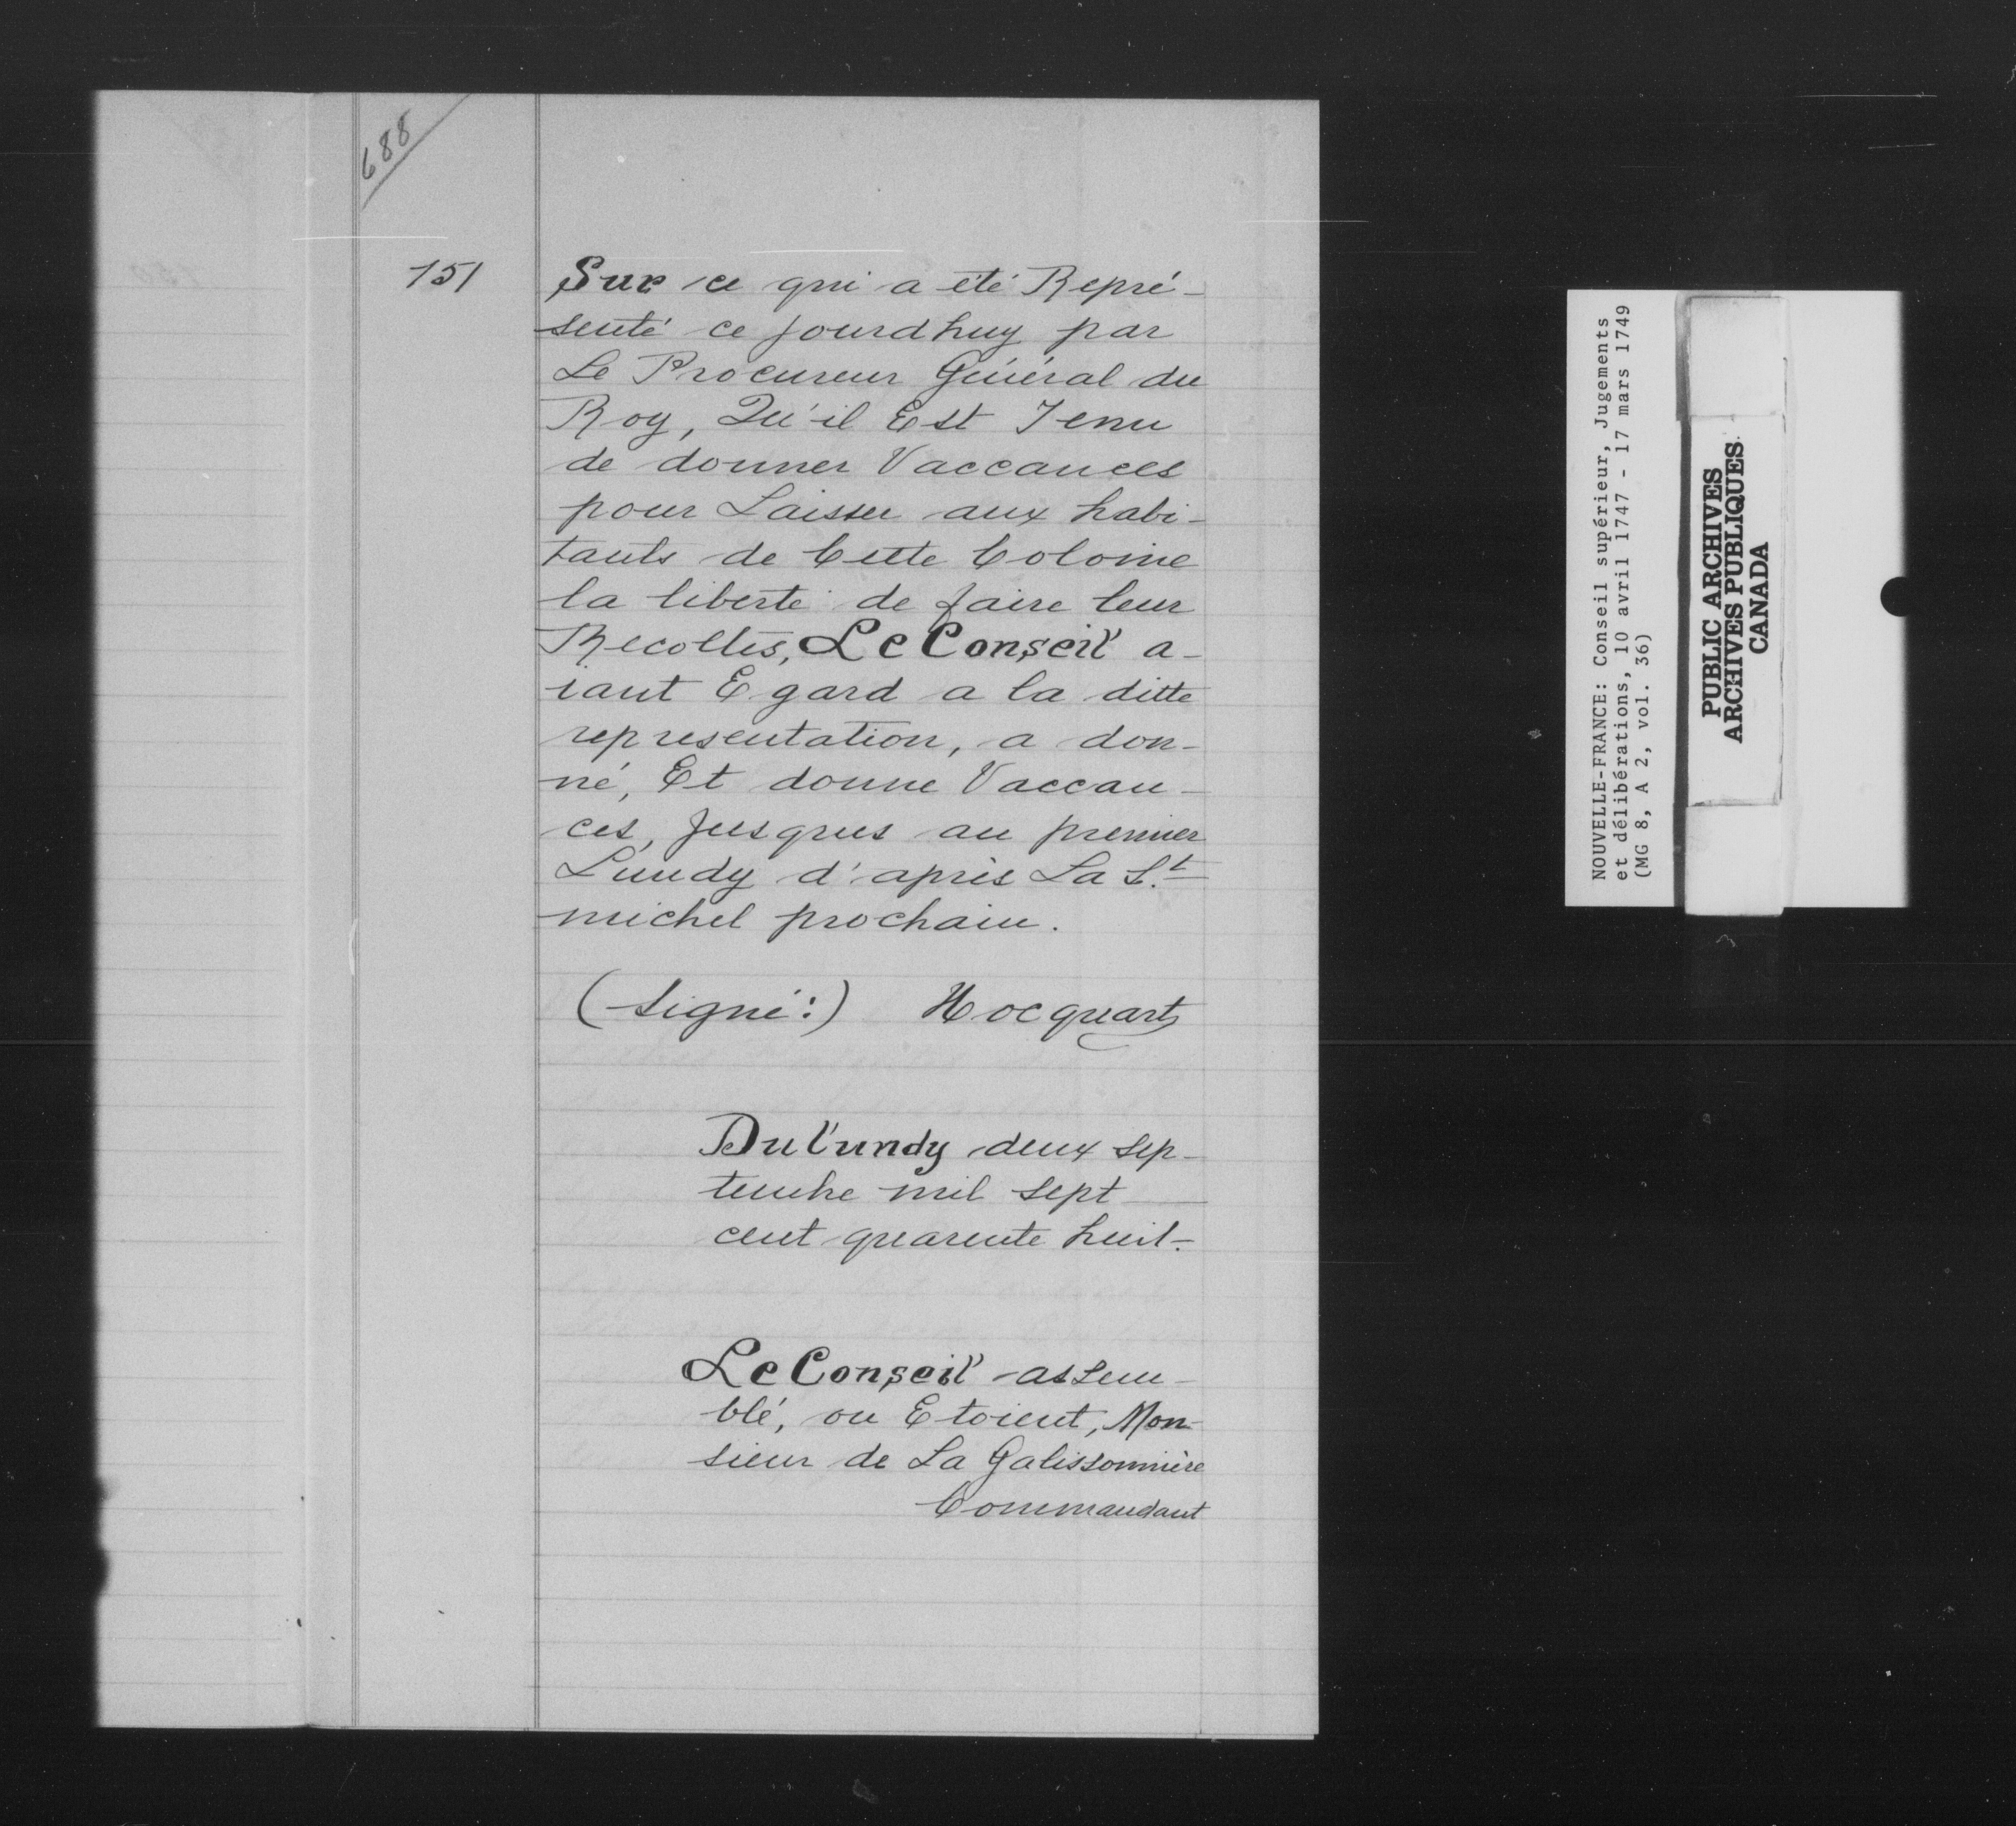 688
151
Sur ce qui a été Repré-
senté ce jourdhuy par
Le Procureur Général du
Roy, Qu'il Est Tenu
de donner Vaccances
pour Laisser aux habi-
tants de Cette Colonie
la liberté de faire leur
Recoltes, Le Conseil a-
iant Egard a la ditte
representation, a don-
né, Et donne Vaccan-
ces, jusques au premier
Lundy d'après La St.
michel prochain.
(signé:) Hocquart
Du Lundy deux sep-
tembre mil sept
cent quarente huit.
Le Conseil assem-
blé, ou Etoient, Mon-
sieur de La Galissonnière
Commandant
NOUVELLE-FRANCE: Conseil supérieur, Jugements
et délibérations, 10 avril 1747 - 17 mars 1749
(MG 8, A 2, vol. 36)
PUBLIC ARCHIVES
ARCHIVES PUBLIQUES
CANADA